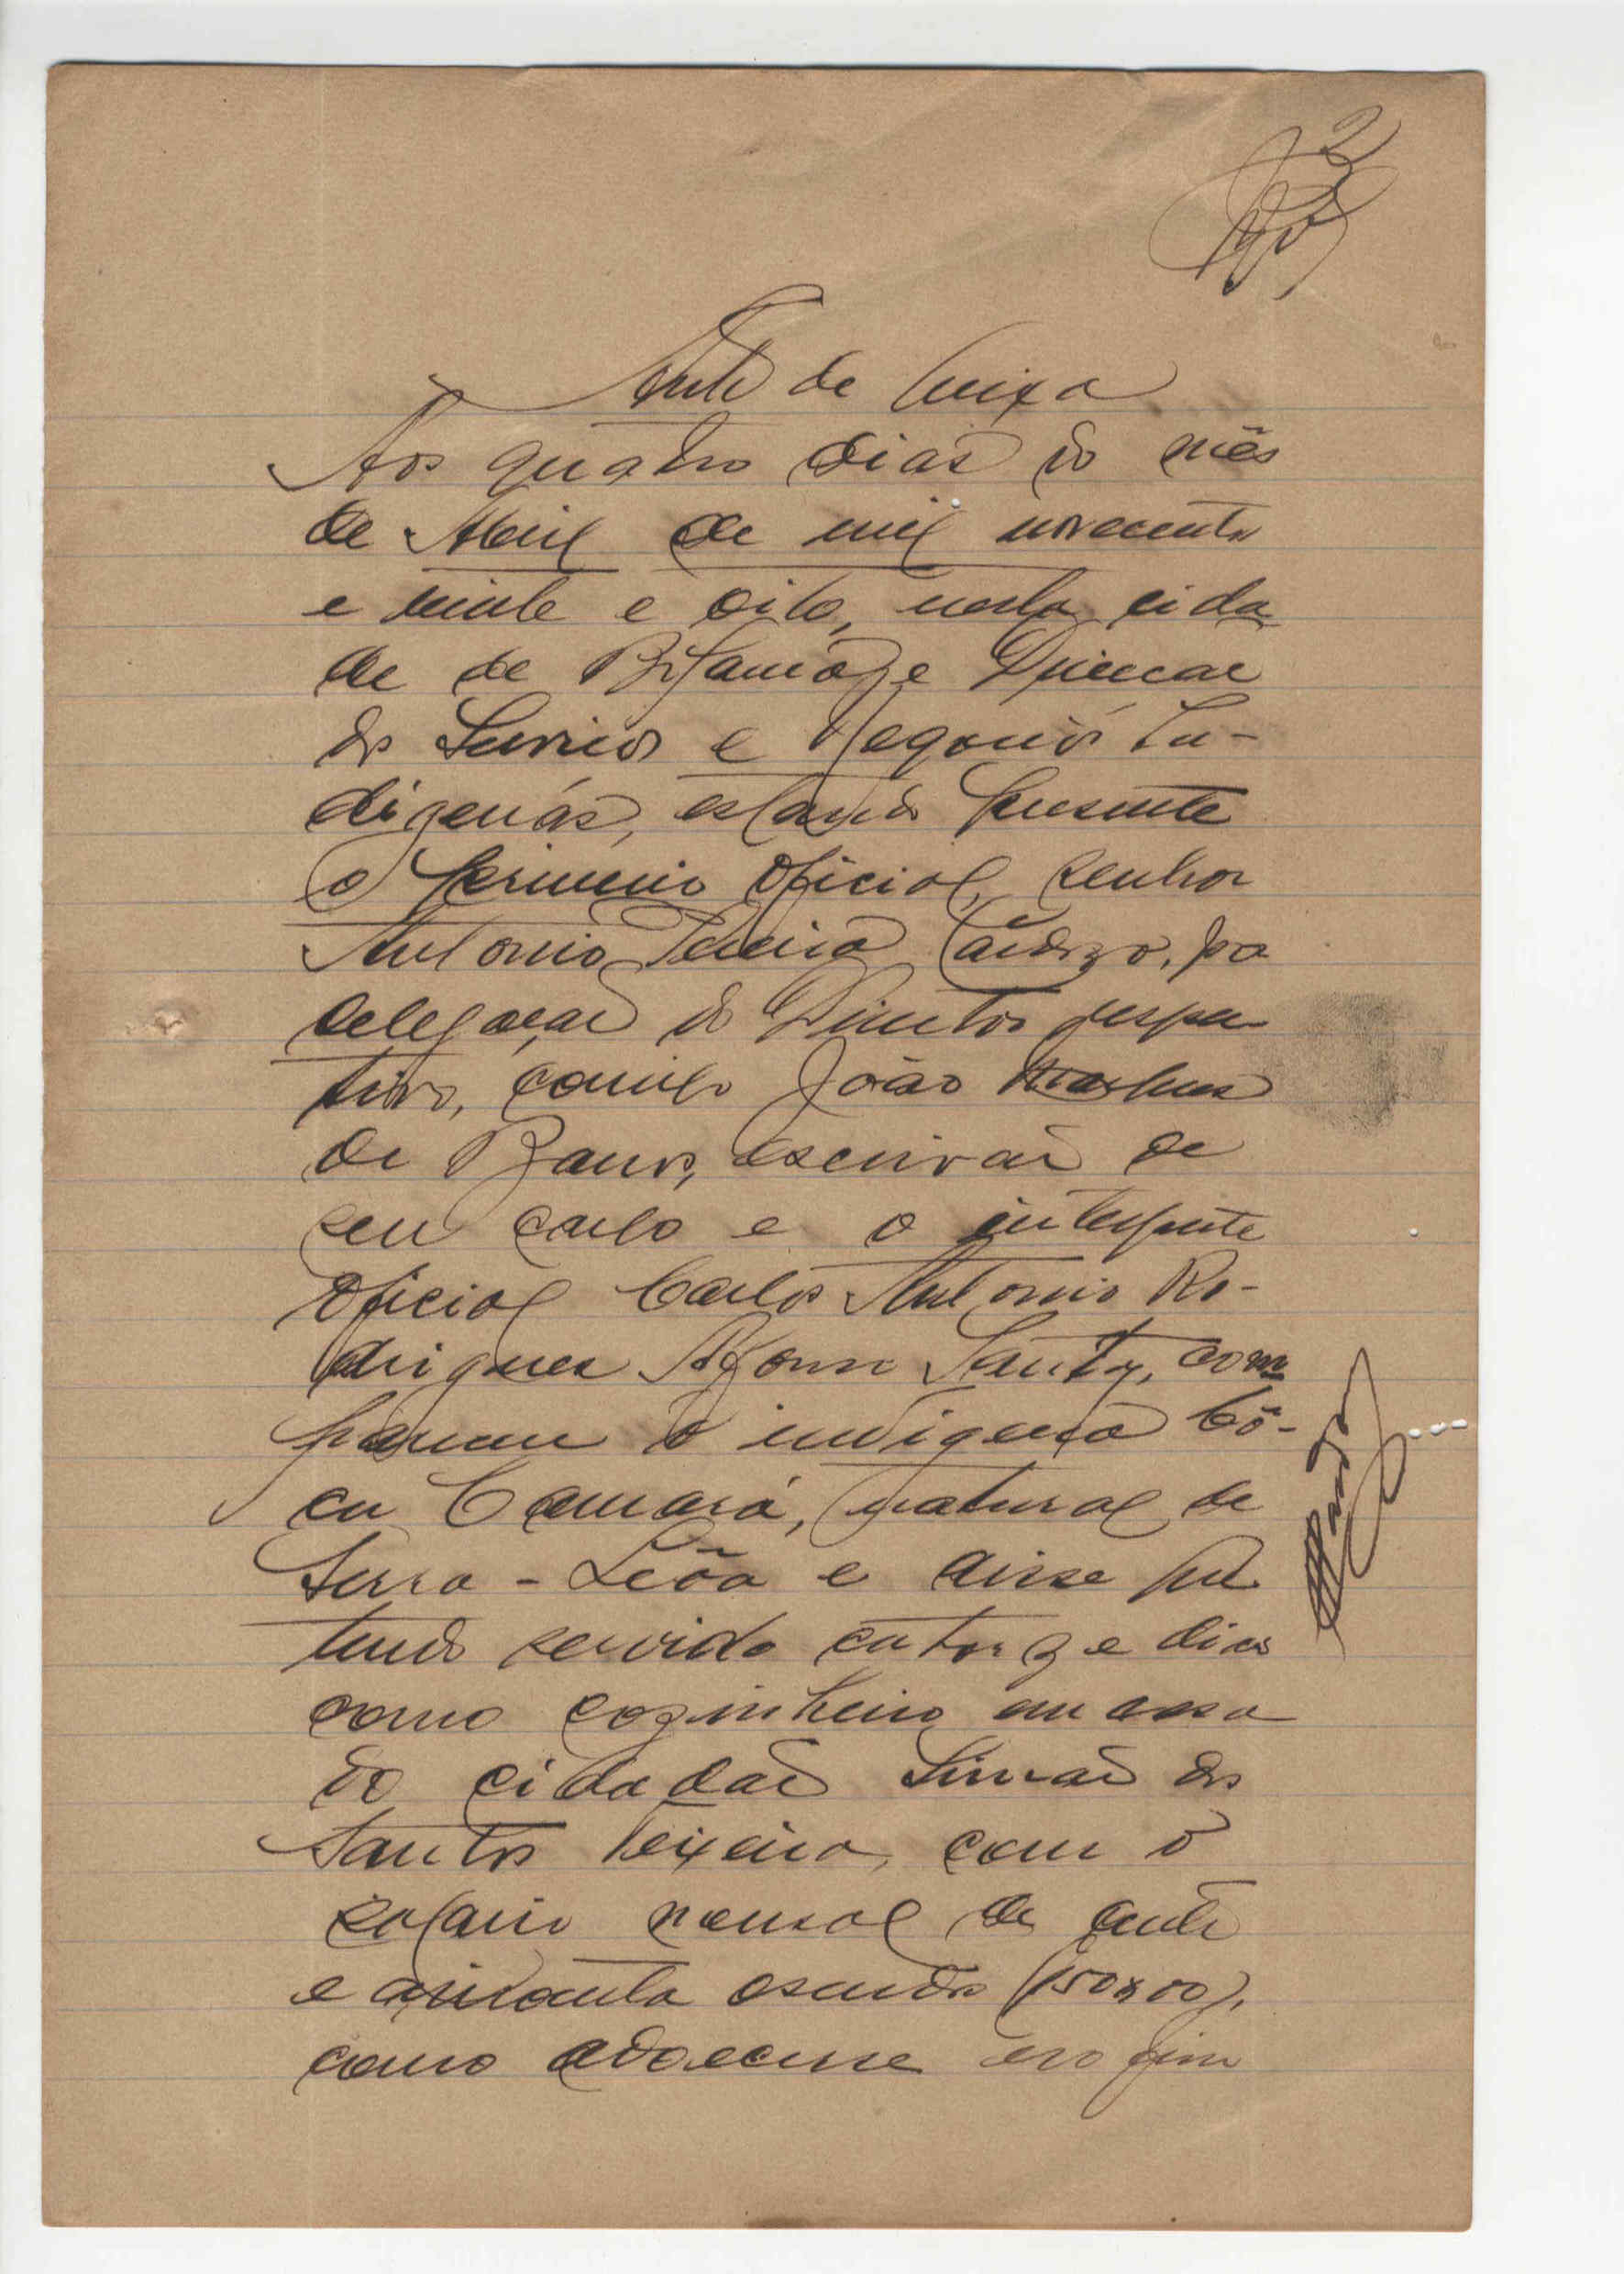 2
Auto de queixa
Aos quatro dias do mês
de Abril de mil novecentos
e vinte e oito, nesta cida
de de Bissau e Direcção
dos Serviços e Negocios In-
digenas, estando presente
o primeiro oficial, senhor
Antonio Pereira Cardozo, por
delegação do Director respe
tivo, comigo João
de Barros, escrivão de
seu cargo e o interprete
oficial Carlos Antonio Ro-
drigues Afonso Santy, com
pareceu o indigena Cô-
cu Camará, natural de
Serra-Leôa e disse que
tendo servido catorze dias
como cozinheiro em casa
do cidadão Simão dos
Santos Teixeira, com o
salario mensal de cento
e cincoenta escudos (150$00),
como adoecesse no fim